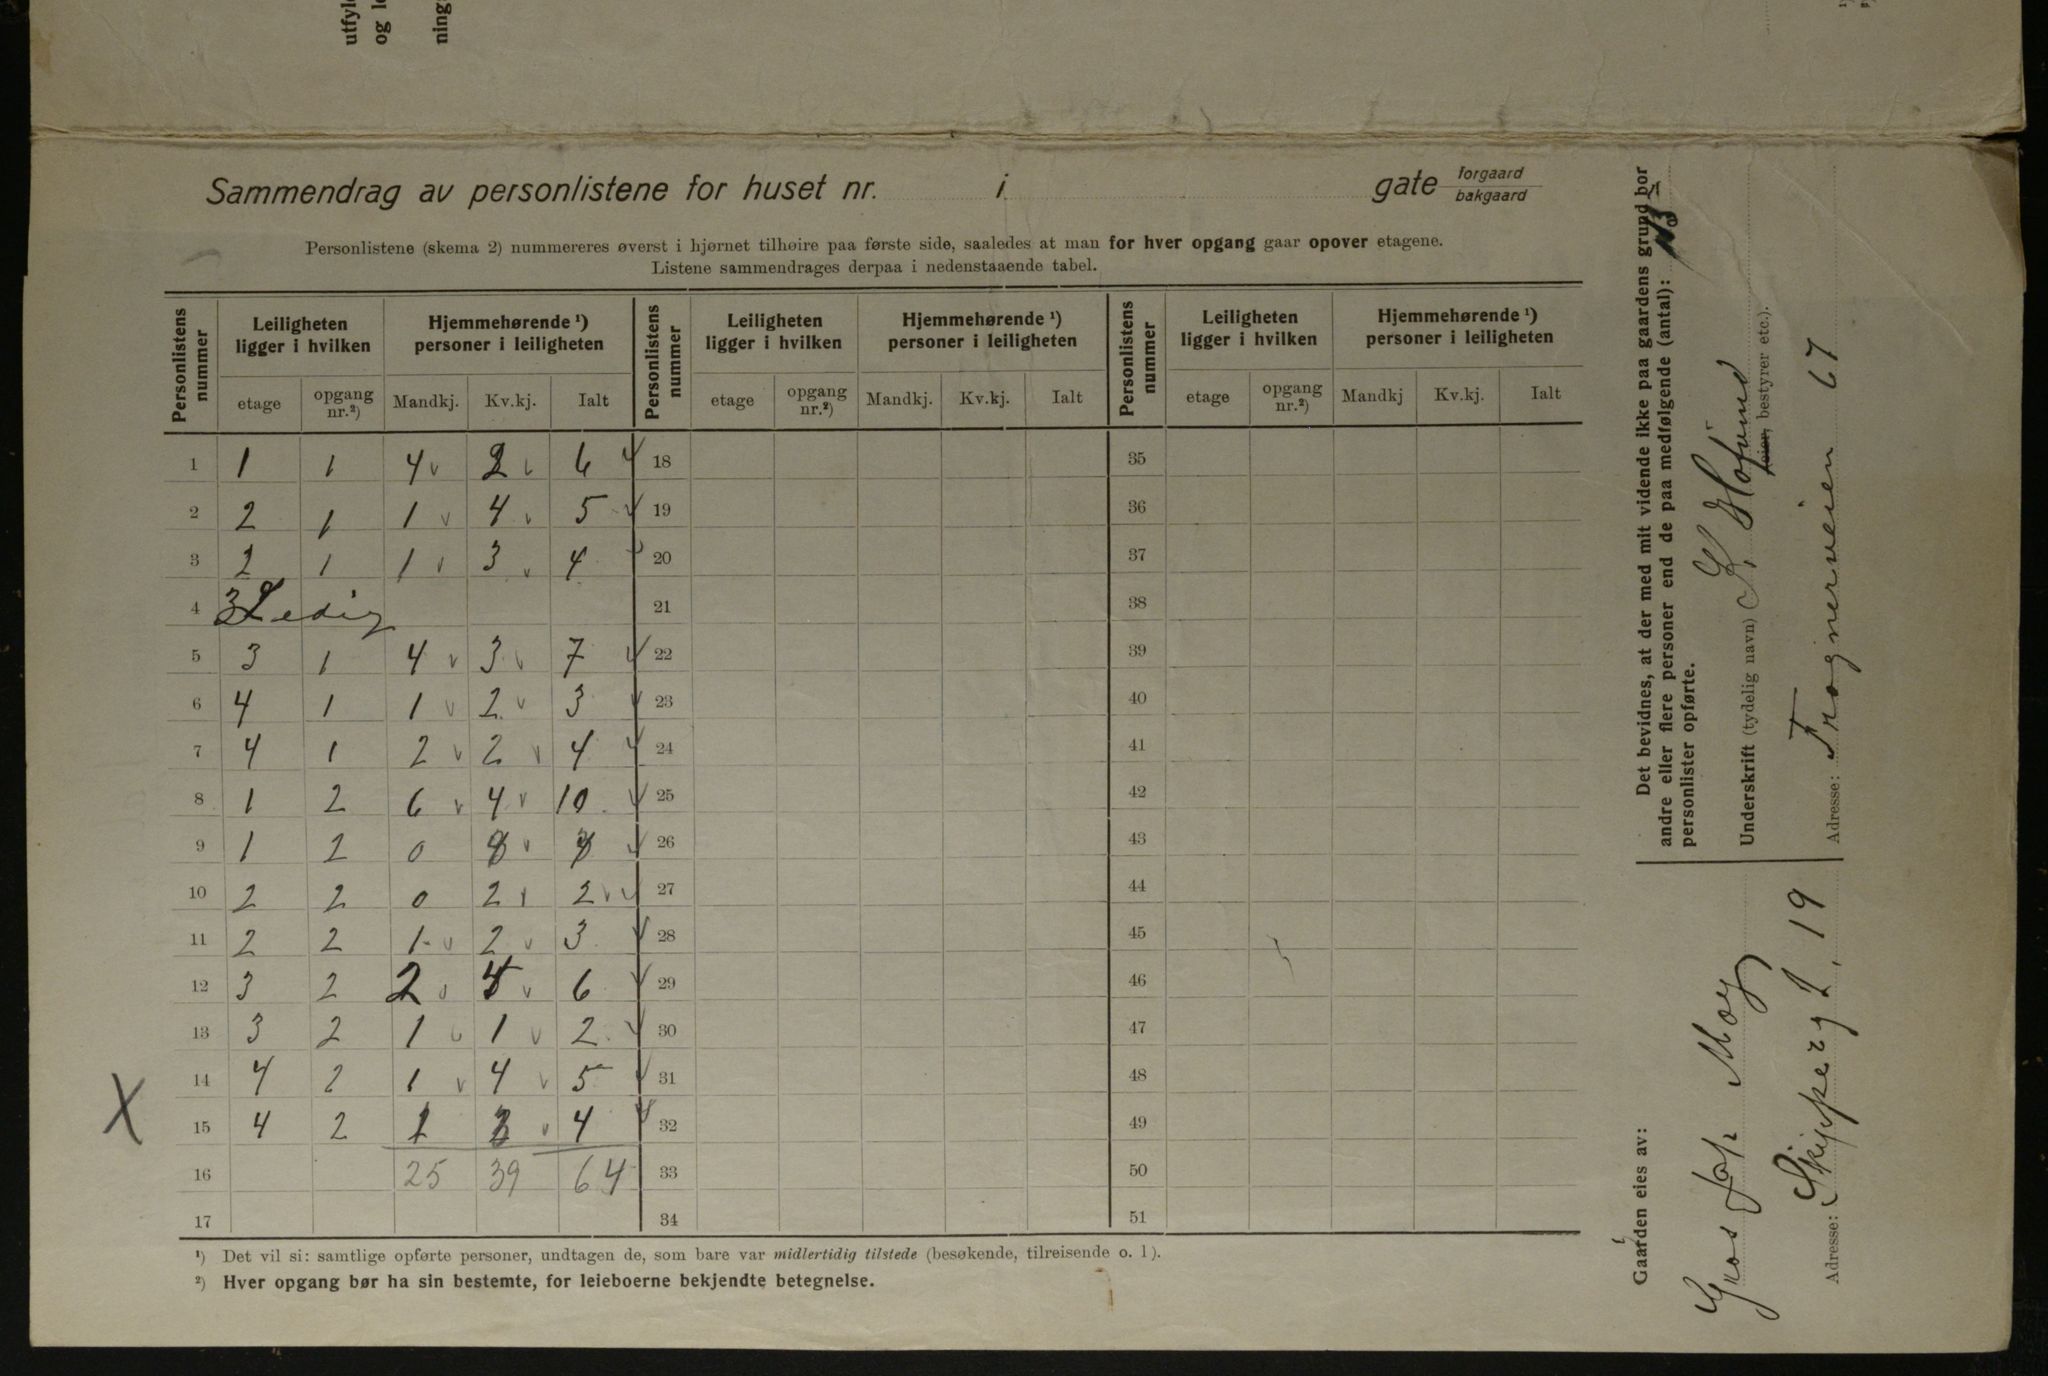 utfyl
og l
ning
Sammendrag av personlistene for huset nr. i gate forgaard bakgaard
Personlistene (skema 2) nummereres øverst i hjørnet tilhøire paa første side, saaledes at man for hver opgang gaar opover etagene.
Listene sammendrages derpaa i nedenstaaende tabel.
Personlistens nummer Leiligheten ligger i hvilken Hjemmehørende ¹) personer i leiligheten Personlistens nummer Leiligheten ligger i hvilken Hjemmehørende ¹) personer i leiligheten Personlistens nummer Leiligheten ligger i hvilken Hjemmehørende ¹) personer i leiligheten
etage opgang nr.²) Mandkj. Kv.kj. Ialt etage opgang nr.²) Mandkj. Kv.kj. Ialt etage opgang nr.²) Mandkj Kv.kj. Ialt
1 1 1 4 2 6 18 35
2 2 1 1 4 5 19 36
3 2 1 1 3 4 20 37
4 3 Ledig 21 38
5 3 1 4 3 7 22 39
6 4 1 1 2 3 23 40
7 4 1 2 2 4 24 41
8 1 2 6 4 10 25 42
9 1 2 0 26 43
10 2 2 0 2 2 27 44
11 2 2 1 2 3 28 45
12 3 2 2 4 6 29 46
13 3 2 1 1 2 30 47
14 4 2 1 4 5 31 48
X 15 4 2 1 3 4 32 49
16 25 39 64 33 50
17 34 51
¹) Det vil si: samtlige opførte personer, undtagen de, som bare var midlertidig tilstede (besøkende, tilreisende o. l).
²) Hver opgang bør ha sin bestemte, for leieboerne bekjendte betegnelse.
Det bevidnes, at der med mit vidende ikke paa gaardens grund bor
andre eller flere personer end de paa medfølgende (antal):
personlister opførte.
Underskrift (tydelig navn) K. Hofvind
leier, bestyrer etc.).
Adresse: Frognerveien 67
Gaarden eies av:
Moy
Adresse: Skipperg. 19